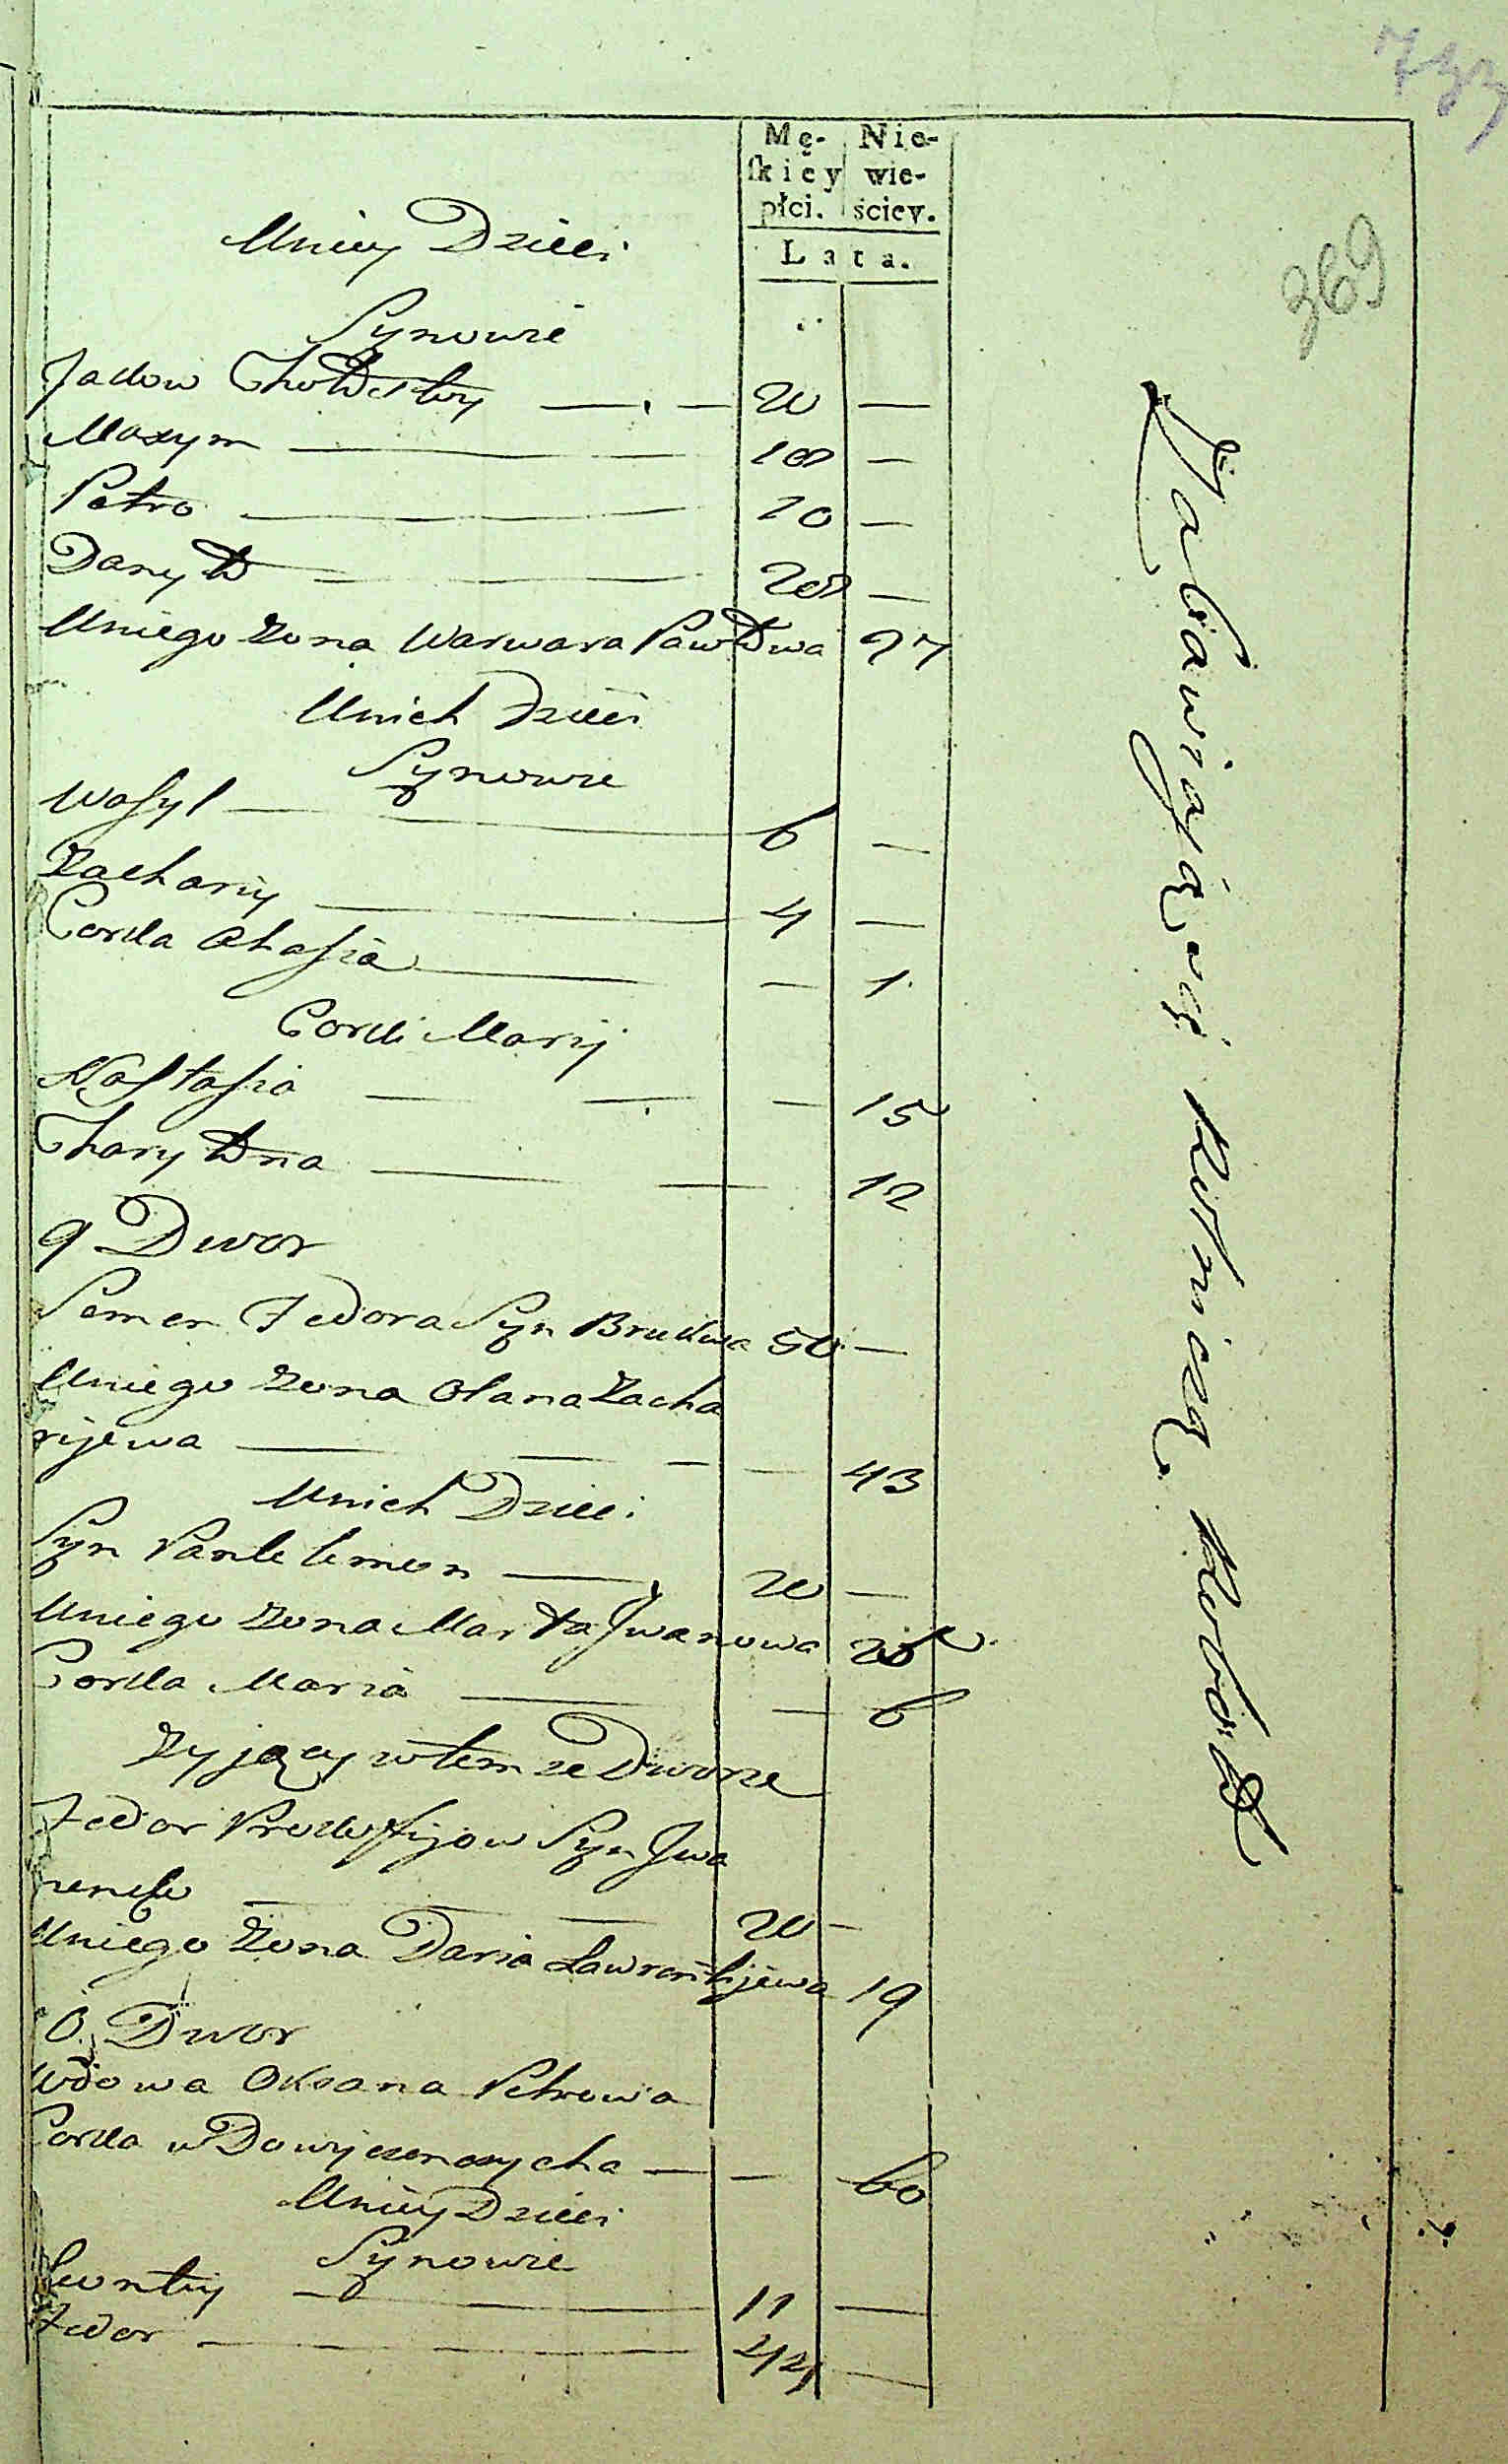 733
Mę- Nie-
skiey wie-
płci. ściey.
Lata.
369
Uniey Dzieci
Synowie
Jakow Chołosty — 20 —
Maxym — 18 —
Petro — 10 —
Danyło — 28 —
Uniego Zona Warwara Pawłowa 27
Unich Dzieci
Synowie
Wasyl — 6 —
Zachary — 4 —
Corka Ahasia — — 1
Corki Maryi
Nastasia — — 15
Charytyna — — 12
9 Dwor
Semen Fedora Syn Brukwa 50 —
Uniego Zona Olana Zacha
ryiewa — — 43
Unich Dzieci
Syn Pantelemon — 20 —
Uniego Zona Marta Jwanowa 20
Corka Maria — — 6
Zyjący w tem ze Dworze
Fedor Prokofijow Syn Jwa
nenko — 20 —
Uniego Zona Daria Ławrentijewa 19
10 Dwor
Wdowa Oksana Petrowa
Corka — — 60
Uniey Dzieci
Synowie
Leontij — 11 —
Fedor — 44 —
Zabawiaią się Rolniczą Robotą